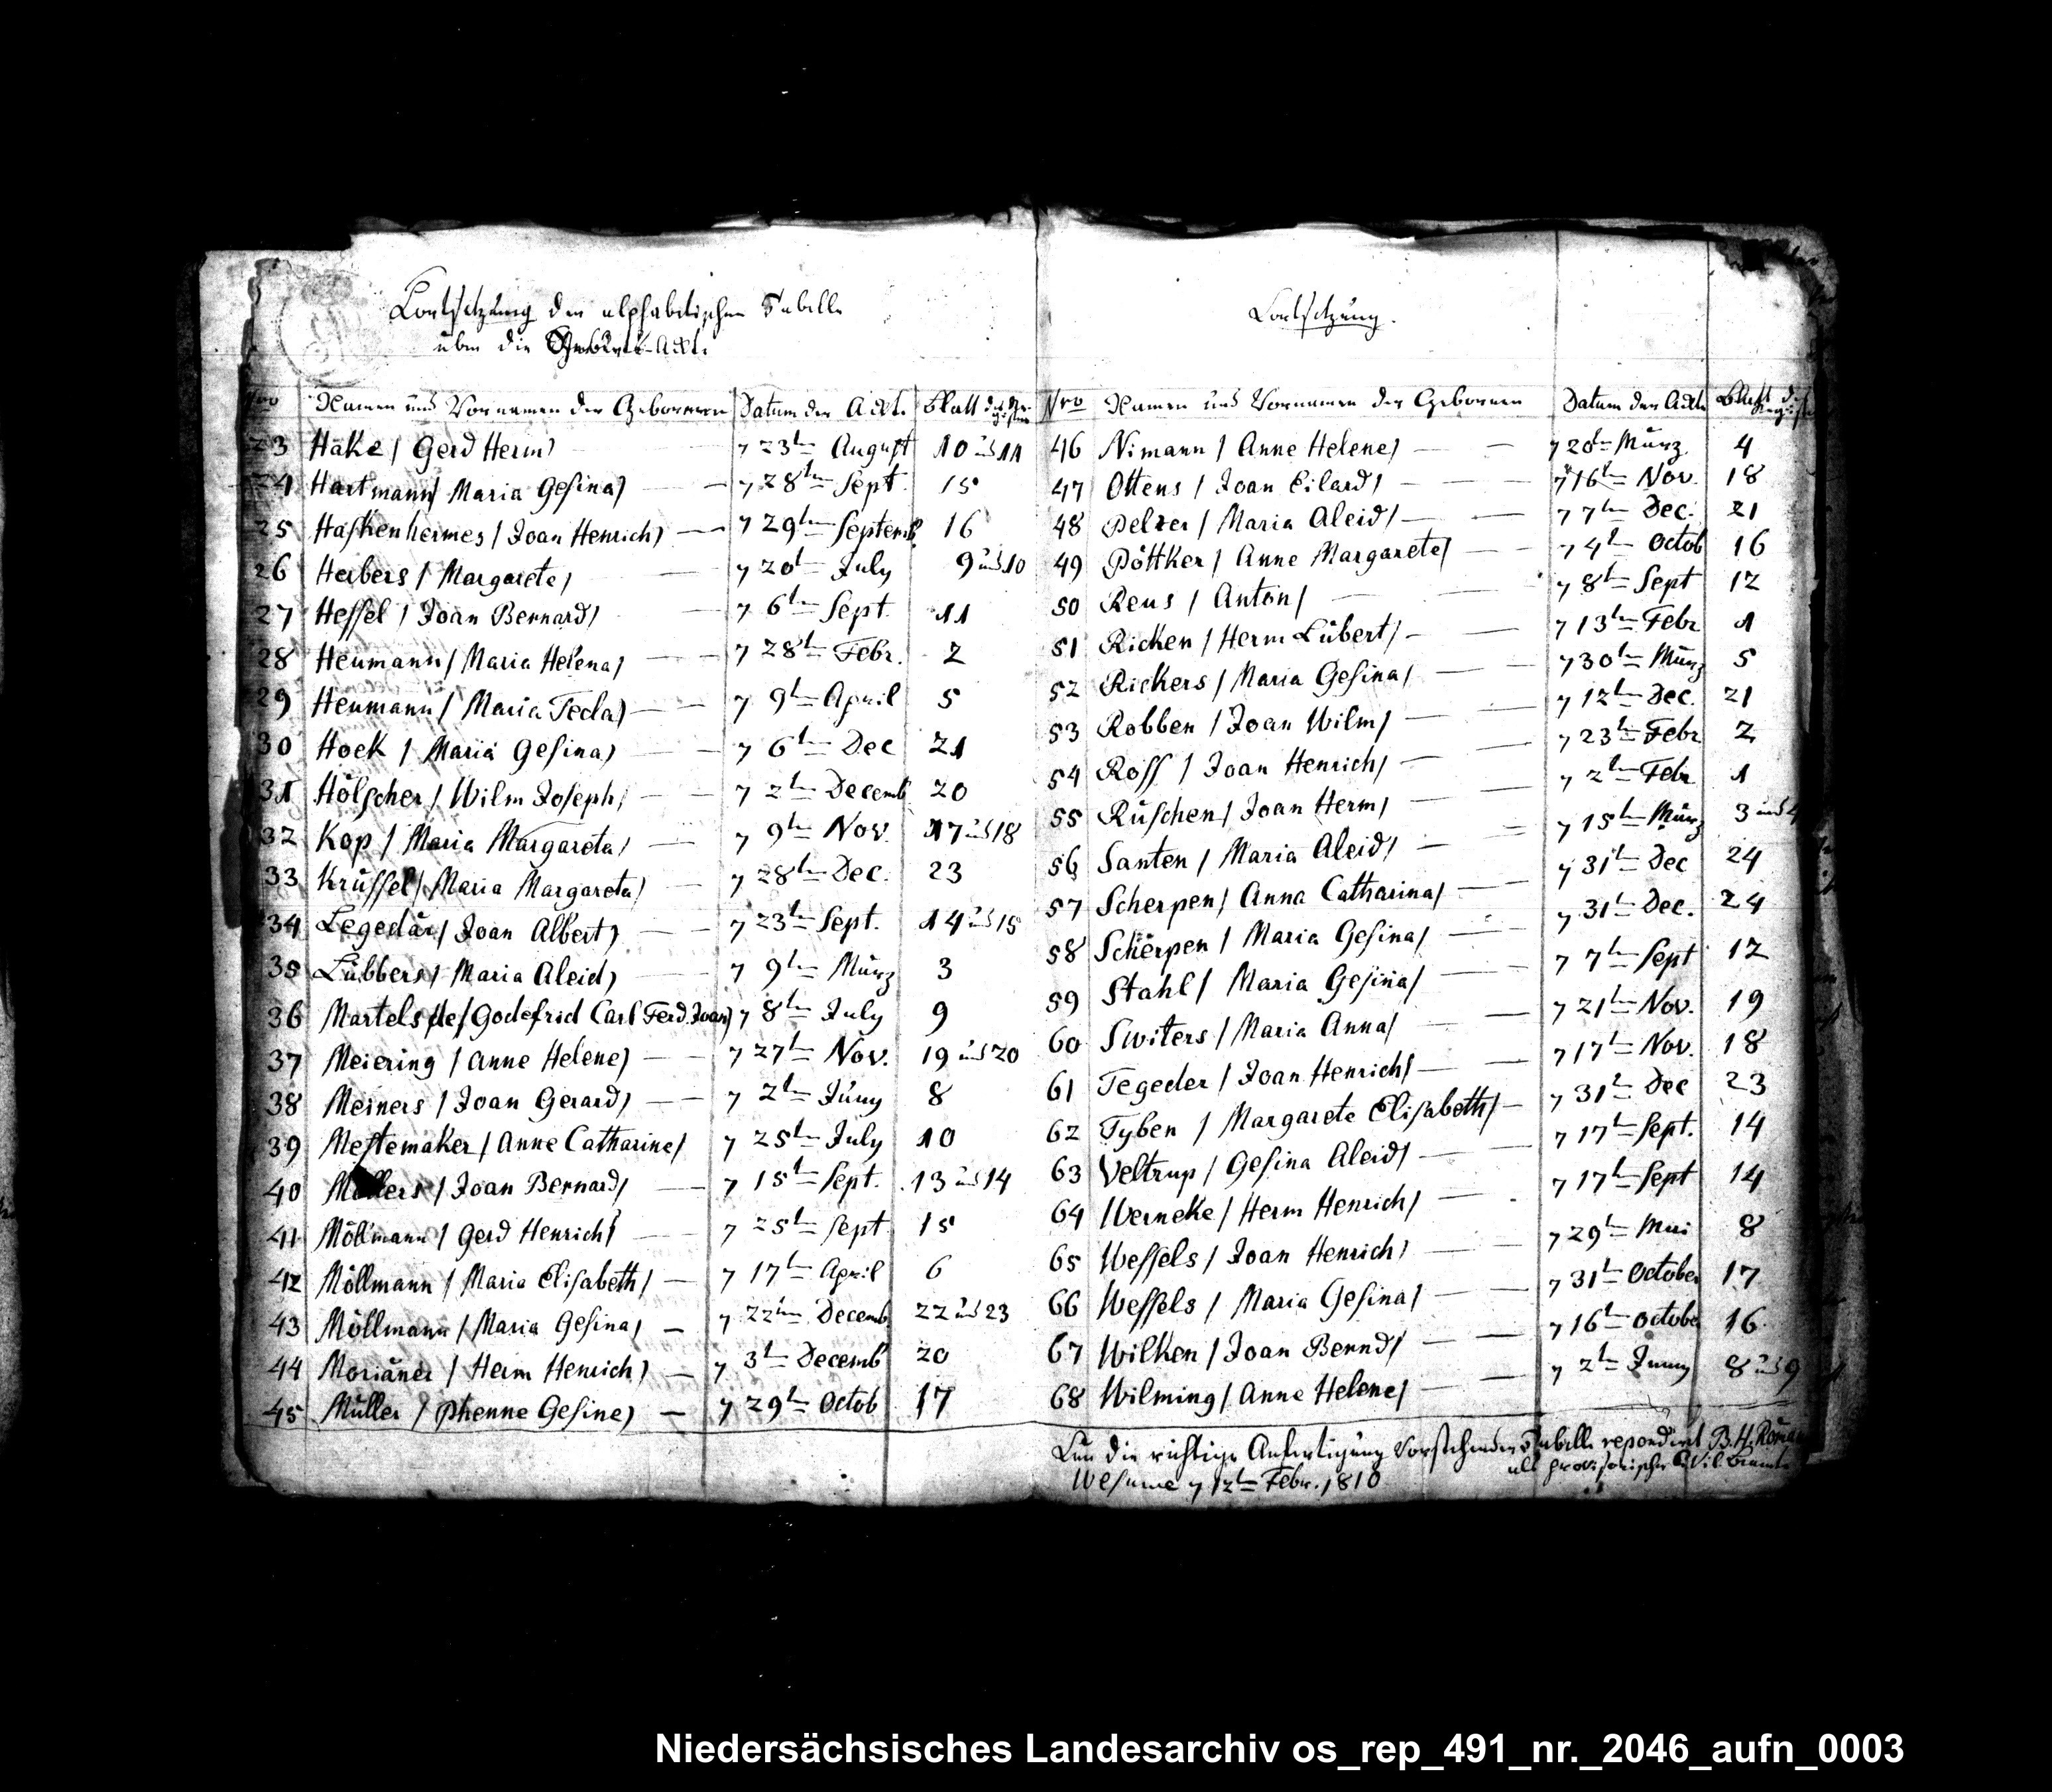 Fortsetzung der alphabetischen Tabelle
über die Geburts-Acte
Nro Namen und Vornamen der Gebornen Datum der Acte Blatt des Registers
23 Hake / Gerd Herm) 7 23t August 10 und 11
24 Hartmann / Maria Gesina) 7 28t Sept. 15
25 Haskenhermes / Joan Henrich) 7 29t Septemb. 16
26 Herbers / Margarete) 7 20t July 9 und 10
27 Hessel / Joan Bernard) 7 6t Sept. 11
28 Heumann / Maria Helena) 7 28t Febr. 2
29 Heumann / Maria Tecla) 7 9t April 5
30 Hoek / Maria Gesina) 7 6t Dec 21
31 Hölscher / Wilm Joseph) 7 2t Decemb 20
32 Kop / Maria Margareta) 7 9t Nov. 17 und 18
33 Krüssel / Maria Margareta) 7 28t Dec. 23
34 Legedär / Joan Albert) 7 23t Sept. 14 und 15
35 Lübbers / Maria Aleid) 7 9t März 3
36 Martels de / Godefrid Carl Ferd. Joan) 7 8t July 9
37 Meiering / Anne Helene) 7 27t Nov. 19 und 20
38 Meiners / Joan Gerard) 7 2t Juny 8
39 Mestemaker / Anne Catharine / 7 25t July 10
40 Möllers / Joan Bernard) 7 15t Sept. 13 und 14
41 Möllmann / Gerd Henrich) 7 25t Sept 15
42 Möllmann / Maria Elisabeth) 7 17t April 6
43 Möllmann / Maria Gesina) 7 22t Decemb. 22 und 23
44 Morianer / Herm Henrich) 7 3t Decemb 20
45 Müller / Phenne Gesine) 7 29t Octob 17
Fortsetzung.
Nro Namen und Vornamen der Gebornen Datum der Acte Blatt des Register
46 Nimann / Anne Helene) 7 20t März 4
47 Ottens / Joan Eilard) 7 16t Nov. 18
48 Pelzer / Maria Aleid) 7 7t Dec. 21
49 Pöttker / Anne Margarete) 7 4t Octob 16
50 Reus / Anton / 7 8t Sept 12
51 Ricken / Herm Lübert) 7 13t Febr 1
52 Rickers / Maria Gesina) 7 30t März 5
53 Robben / Joan Wilm) 7 12t Dec. 21
54 Ross / Joan Henrich) 7 23t Febr 2
55 Rüschen / Joan Herm) 7 2t Febr 1
56 Santen / Maria Aleid) 7 15t März 3 und 4
57 Scherpen / Anna Catharina) 7 31t Dec 24
58 Scherpen / Maria Gesina) 7 31t Dec. 24
59 Stahl / Maria Gesina) 7 7t Sept 12
60 Switers / Maria Anna) 7 21t Nov. 19
61 Tegeder / Joan Henrich) 7 17t Nov. 18
62 Tyben / Margarete Elisabeth) 7 31t Dec 23
63 Veltrup / Gesina Aleid) 7 17t Sept. 14
64 Werneke / Herm Henrich) 7 17t Sept 14
65 Wessels / Joan Henrich) 7 29t Mai 8
66 Wessels / Maria Gesina) 7 31t October 17
67 Wilken / Joan Bernd) 7 16t October 16
68 Wilming / Anne Helene) 7 2t Juny 8 und 9
Für die richtige Anfertigung vorstehender Tabelle repondirt B. H.
als provisorischer Civil Beamte
Wesuwe 7 12t Febr. 1810
Niedersächsisches Landesarchiv os_rep_491_nr._2046_aufn_0003